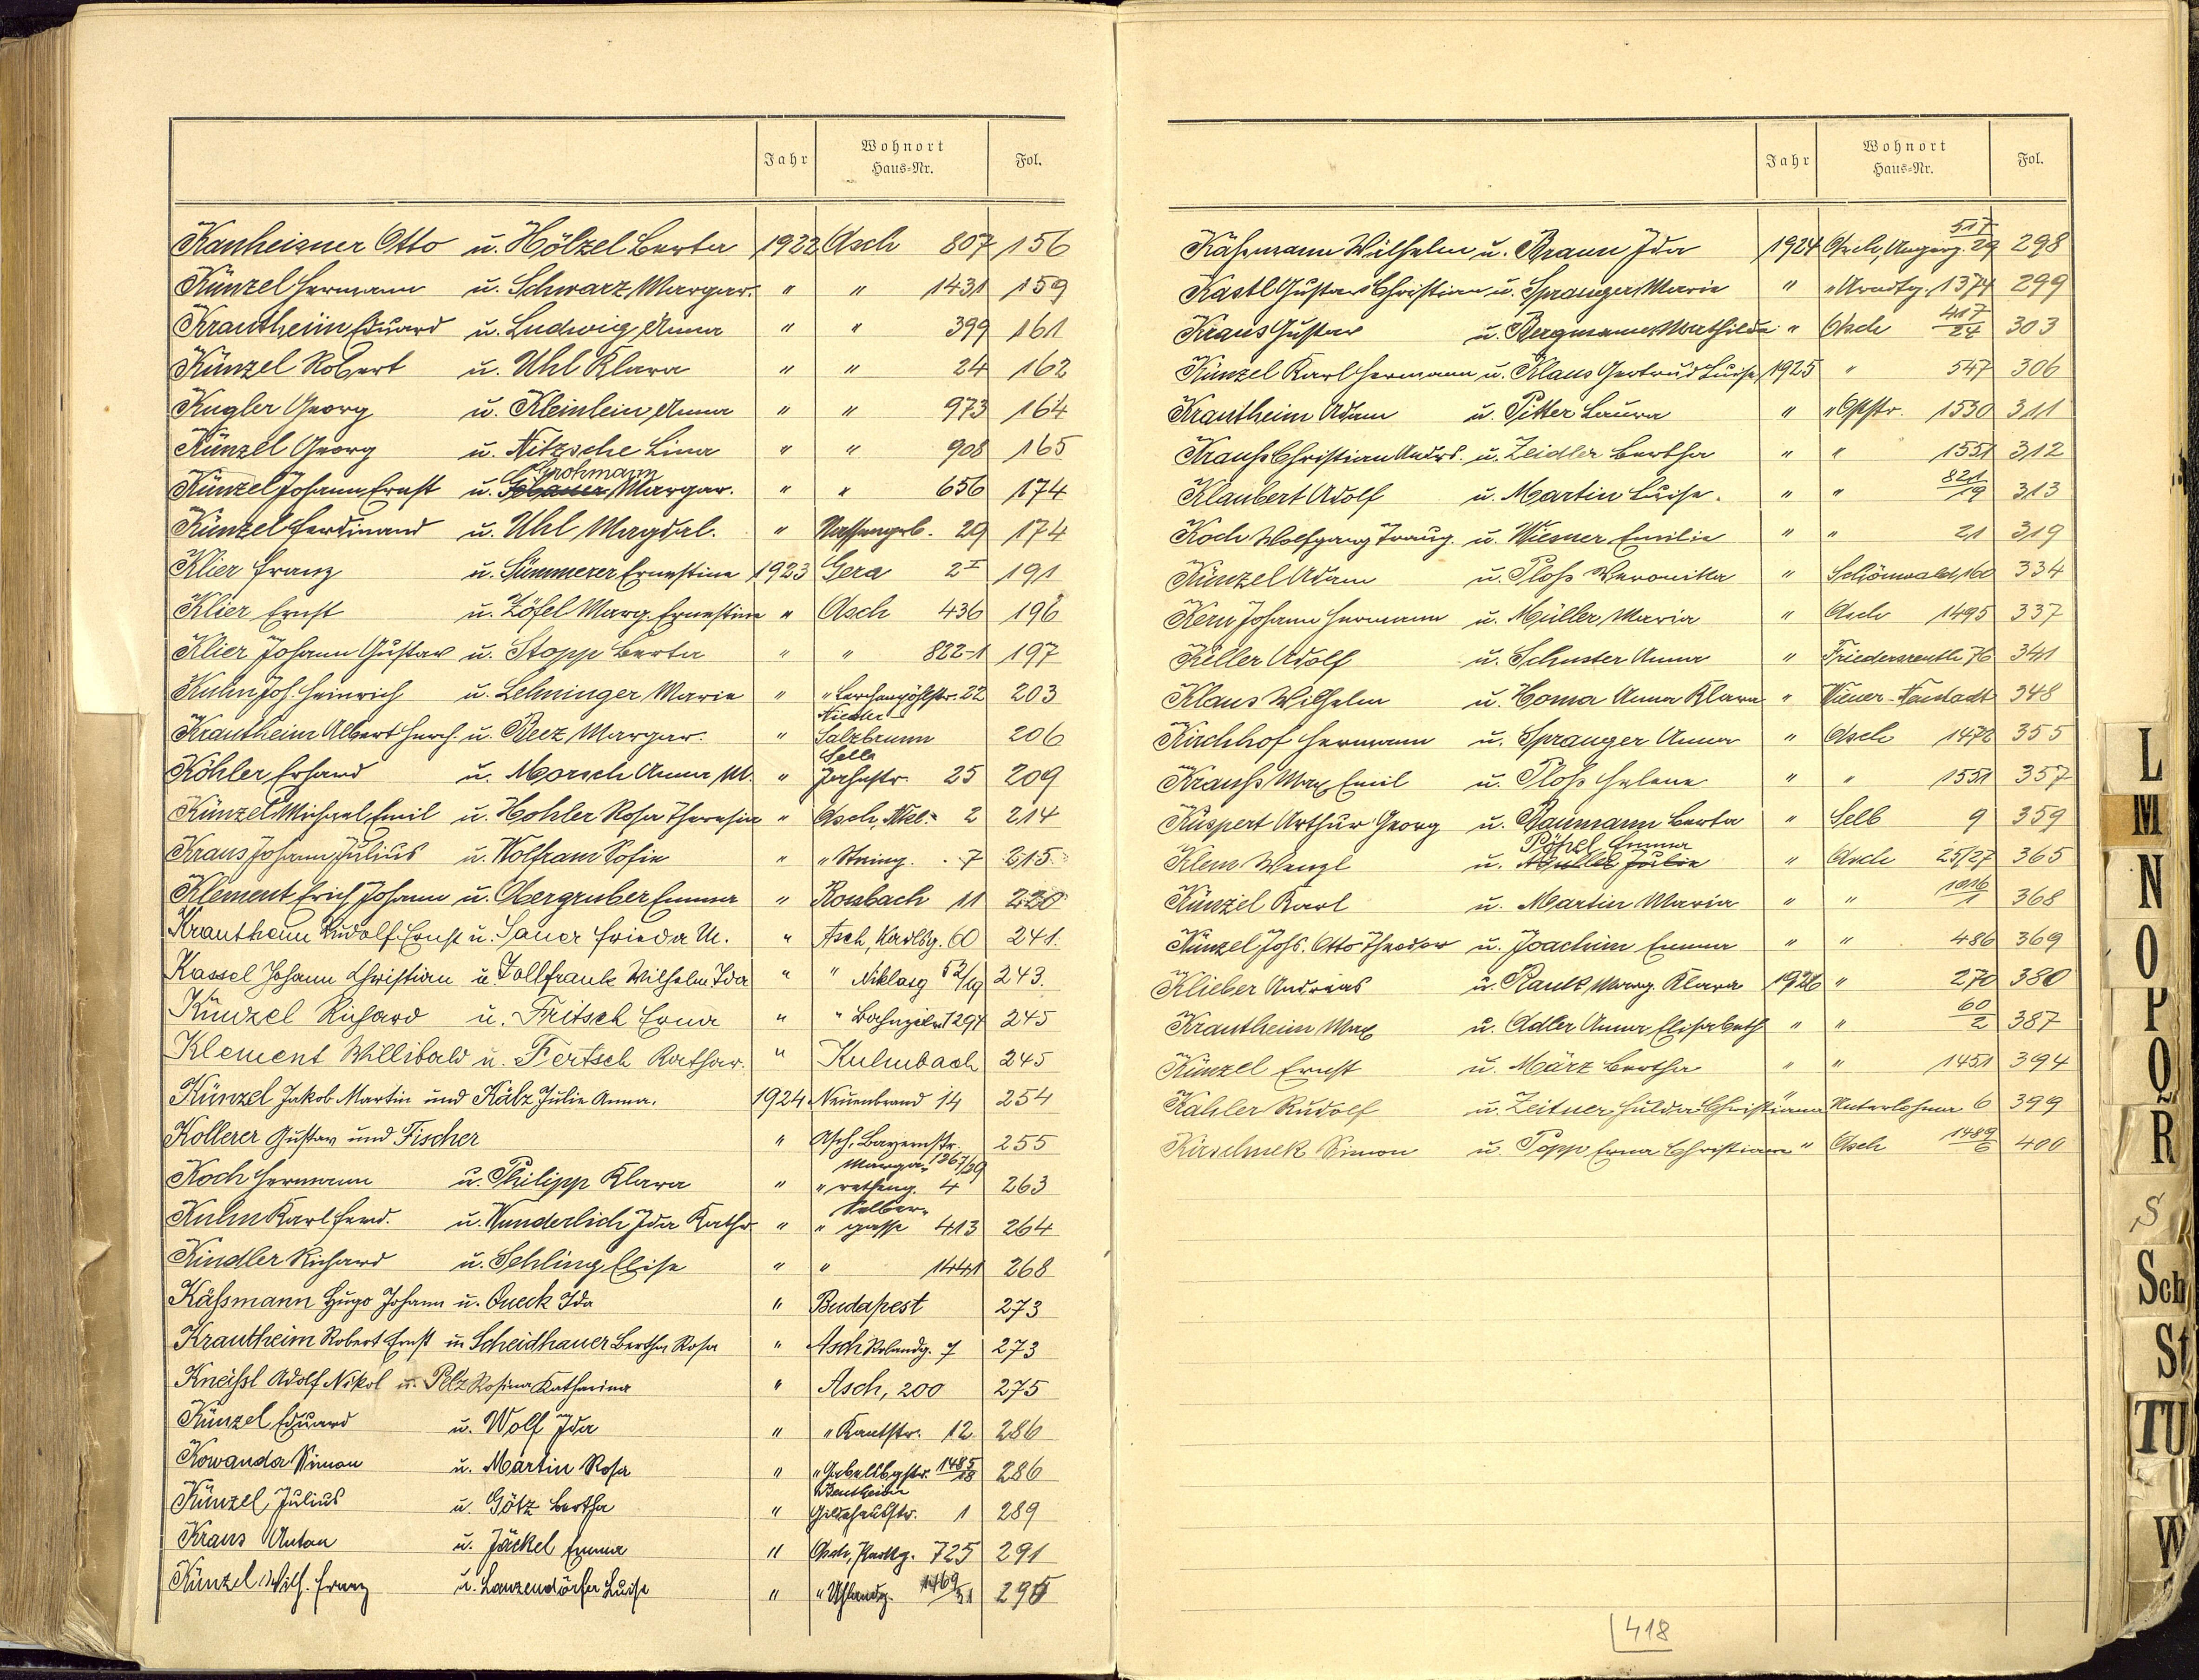 Jahr Wohnort Haus=Nr. Fol.
Kanheisner Otto u. Hölzel Berta 1922 Asch 807 156
Künzel Hermann u. Schwarz Margar. " " 1431 159
Krautheim Eduard u. Ludwig Anna " " 399 161
Künzel Robert u. Uhl Klara " " 24 162
Kugler Georg u. Kleinlein Anna " " 973 164
Künzel Georg u. Nitzsche Lina " " 908 165
Grohmann
Künzel Johann Ernst u. Margar. " " 656 174
Künzel Ferdinand u. Uhl Magdal. " Nassengrb. 29 174
Klier Franz u. Sümmerer Ernestine 1923 Gera 2I 191
Klier Ernst u. Zöfel Marg. Ernestine " Asch 436 196
Klier Johann Gustav u. Stopp Berta " " 822-1 197
Kuhn Joh. Heinrich u. Lehninger Marie " " Lerchenpöhlstr. 22 203
Nieder
Krautheim Albert Herm. u. Beez Margar. " Salzbrunn 206
Selb
Köhler Erhard u. Morsch Anna M. " Jahnstr. 25 209
Künzel Michael Emil u. Hohler Rosa Theresia " Asch, Nkl.= 2 214
Kraus Johann Julius u. Wolfram Sofie " " Steing. 7 215
Klement Erich Johann u. Obergruber Emma " Rossbach 11 220
Krautheim Rudolf Ernst u. Sauer Frieda M. " Asch, Karlsg. 60 241.
Kassel Johann Christian u. Zollfrank Wilhelm. Ida " " Niklasg 52/19 243.
Künzel Richard u. Fritsch Erna " " Bahnzeile 1294 245
Klement Willibald u. Fertsch Kathar. " Kulmbach 245
Künzel Jakob Martin und Kätz Julie Anna. 1924 Neuenbrand 14 254
Kollerer Gustav und Fischer " Asch, Bayernstr. 1267/29 255
Marga-
Koch Hermann u. Philipp Klara " " retheng. 4 263
Selber-
Kuhn Karl Ferd. u. Wunderlich Ida Kathr. " " gasse 413 264
Kindler Richard u. Sehling Elise " " 1441 268
Käßmann Hugo Johann u. Queck Ida " Budapest 273
Krautheim Robert Ernst u. Scheidhauer Bertha Rosa " Asch Rolandg. 7 273
Kneißl Adolf Nikol u. Pelz Rosina Katharina " Asch, 200 275
Künzel Eduard u. Wolf Ida " " Kantstr. 12 286
Kowanda Simon u. Martin Rosa " " Gabelsbgstr. 1485/18 286
Bentheim
Künzel Julius u. Götz Bertha " Gildehausstr. 1 289
Kraus Anton u. Jäckel Emma " Asch, Karlsg. 725 291
Künzel Wilh. Franz u. Lanzendörfer Luise " " Uhlandg. 1469/31 295
Jahr Wohnort Haus=Nr. Fol.
Käßmann Wilhelm u. Braun Ida 1924 Asch, Angerg. 517/29 298
Kastl Gustav Christian u. Spranger Marie " " Arndtg. 1374 299
Kraus Gustav u. Bergmann Mathilde " Asch 417/24 303
Künzel Karl Hermann u. Klaus Gertrud Luise 1925 " 547 306
Krautheim Adam u. Pitter Laura " " Oststr. 1530 311
Krauß Christian Andrs. u. Zeidler Bertha " " 1551 312
Klaubert Adolf u. Martin Luise. " " 821/19 313
Koch Wolfgang Traug. u. Wiesner Emilie " " 21 319
Künzel Adam u. Ploß Veronika " Schönwald, 160 334
Kern Johann Hermann u. Müller Maria " Asch 1495 337
Keller Adolf u. Schuster Anna " Friedersreuth 76 341
Klaus Wilhelm u. Homa Anna Klara " Wiener-Neustadt 348
Kirchhof Hermann u. Spranger Anna " Asch 1472 355
Krauß Max Emil u. Ploß Helene " " 1551 357
Küspert Arthur Georg u. Baumann Berta " Selb 9 359
Pötzl Emma
Klem Wenzl u. Müller Julie " Asch 25/27 365
Künzel Karl u. Martin Maria " " 1016/1 368
Künzel Johs. Otto Theodor u. Joachim Emma " " 486 369
Klieber Andreas u. Rank Marg. Klara 1926 " 270 380
Krautheim Max u. Adler Anna Elisabeth " " 60/2 387
Künzel Ernst u. März Bertha " " 1451 394
Kahler Rudolf u. Zeitner Hulda Christiana " Unterlohma 6 399
Kirschnek Simon u. Popp Erna Christiane " Asch 1489/6 400
418
L
M
N
O
P
Q
R
S
Sch
St
TU
W